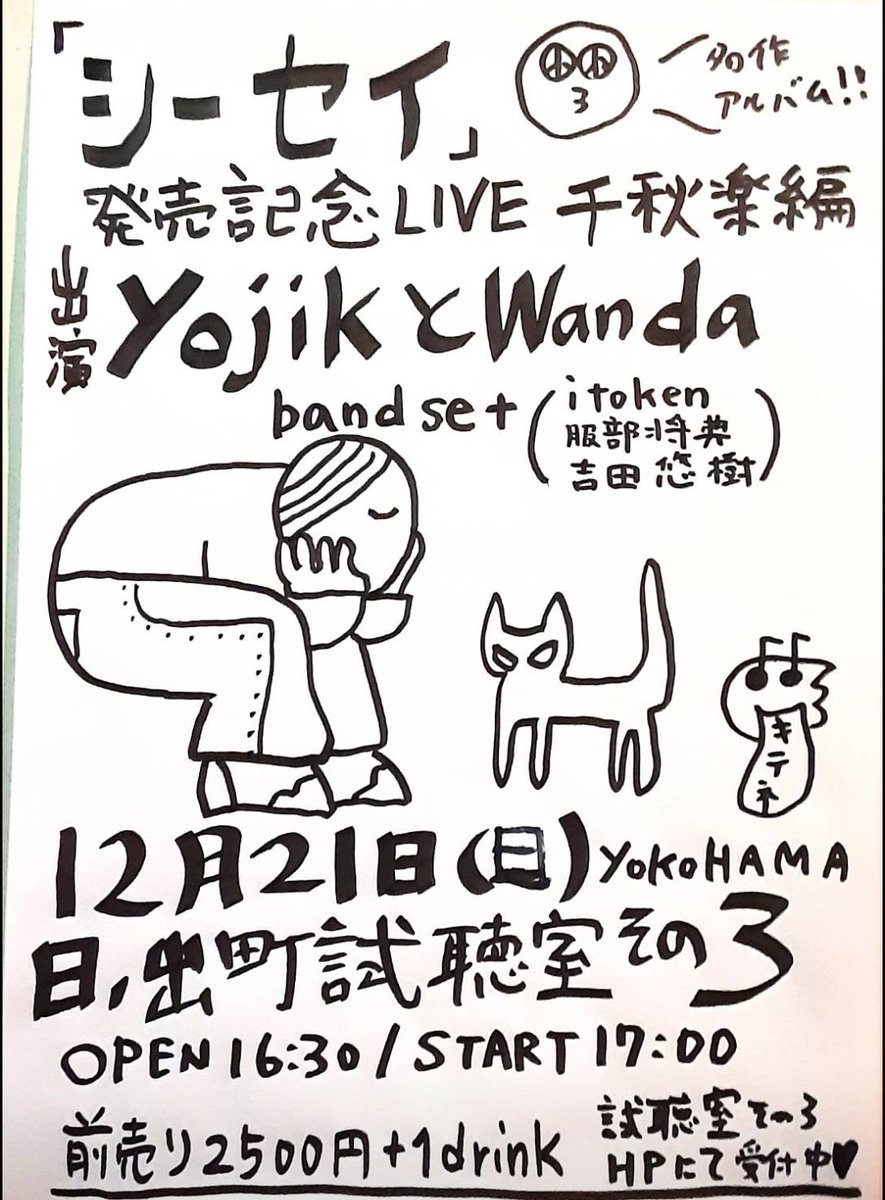 「シーセイ」
多作
アルバム!!
発売記念LIVE 千秋楽編
出演 YojikとWanda
band set (itoken
服部将典
吉田悠樹)
キテネ
12月21日(日) YOKOHAMA
日ノ出町試聴室その3
OPEN 16:30 / START 17:00
前売り2500円+1drink
試聴室その3
HPにて受付中♥